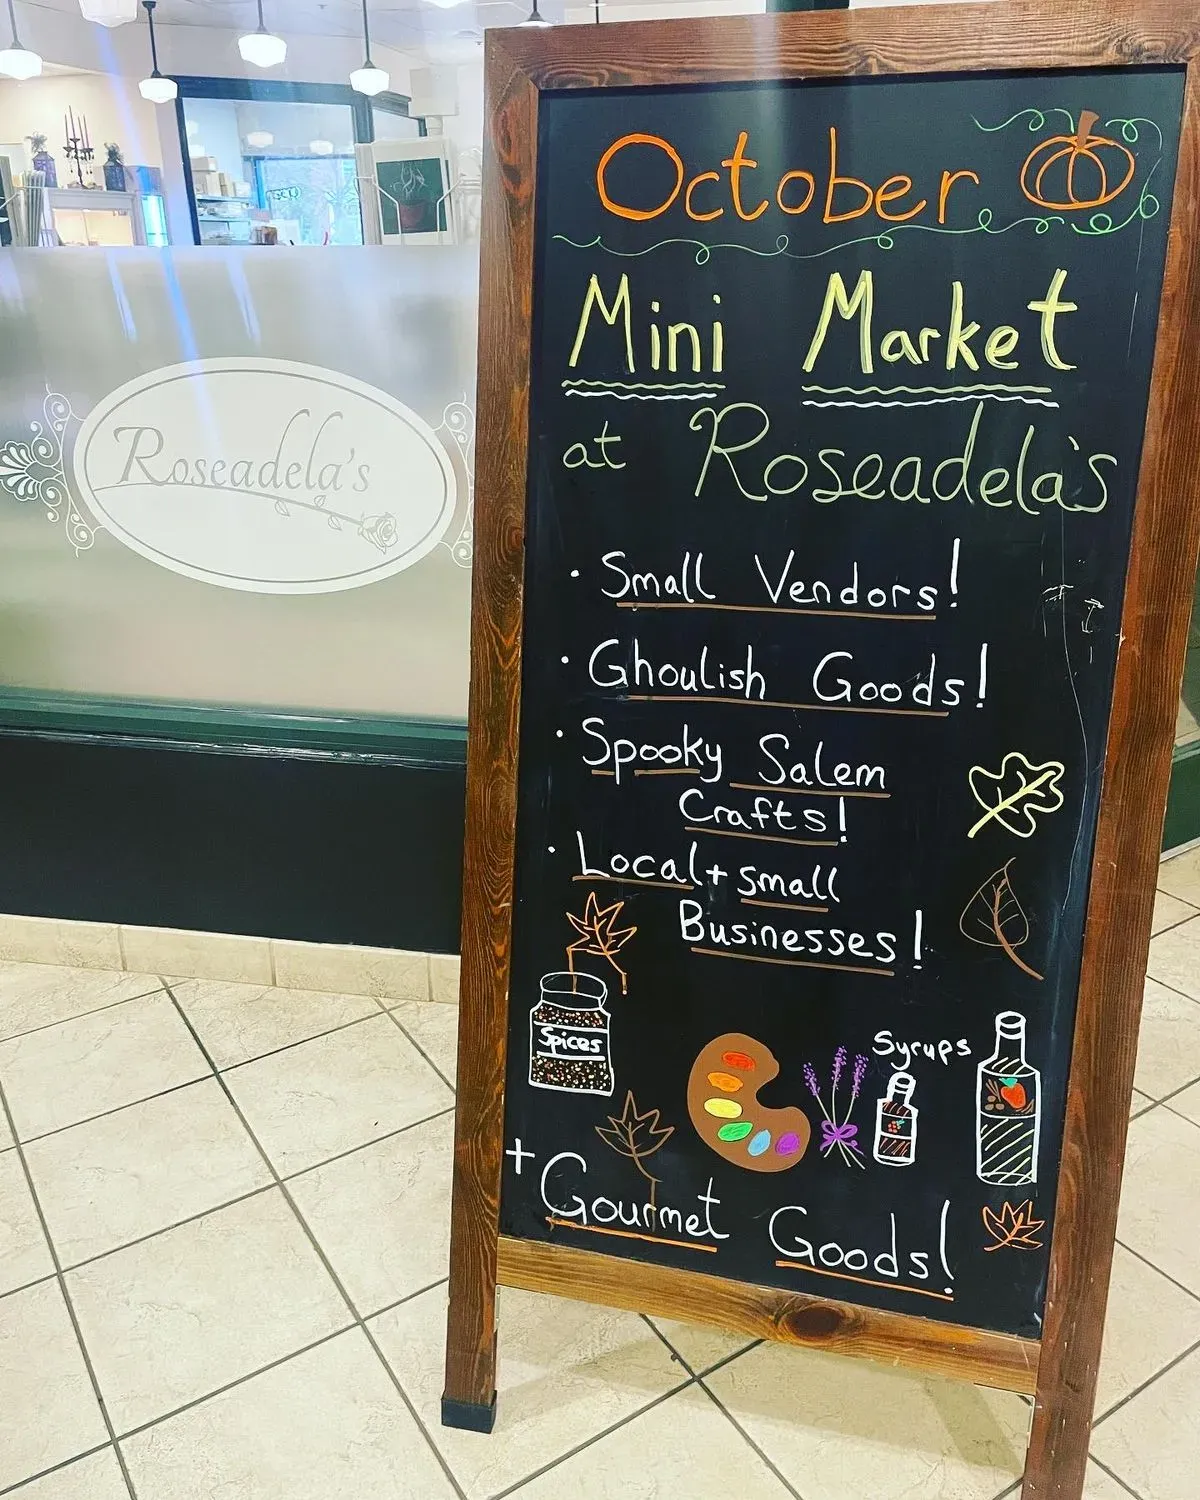 October
Mini Market
at Roseadela's
· Small Vendors!
· Ghoulish Goods!
· Spooky Salem
Crafts!
· Local + small
Businesses!
Spices
Syrups
+ Gourmet Goods!
Roseadela's